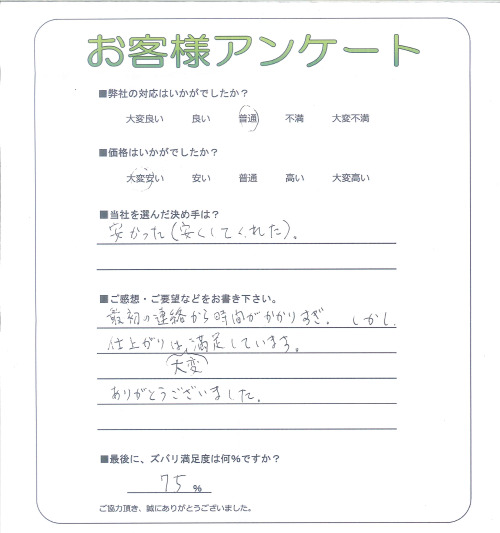 お客様アンケート
■弊社の対応はいかがでしたか？
大変良い 良い 普通 不満 大変不満
■価格はいかがでしたか？
大変安い 安い 普通 高い 大変高い
■当社を選んだ決め手は？
安かった（安くしてくれた）。
■ご感想・ご要望などをお書き下さい。
最初の連絡から時間がかかりすぎ. しかし、
仕上がりは満足しています。
大変
ありがとうございました。
■最後に、ズバリ満足度は何%ですか？
75 %
ご協力頂き、誠にありがとうございました。